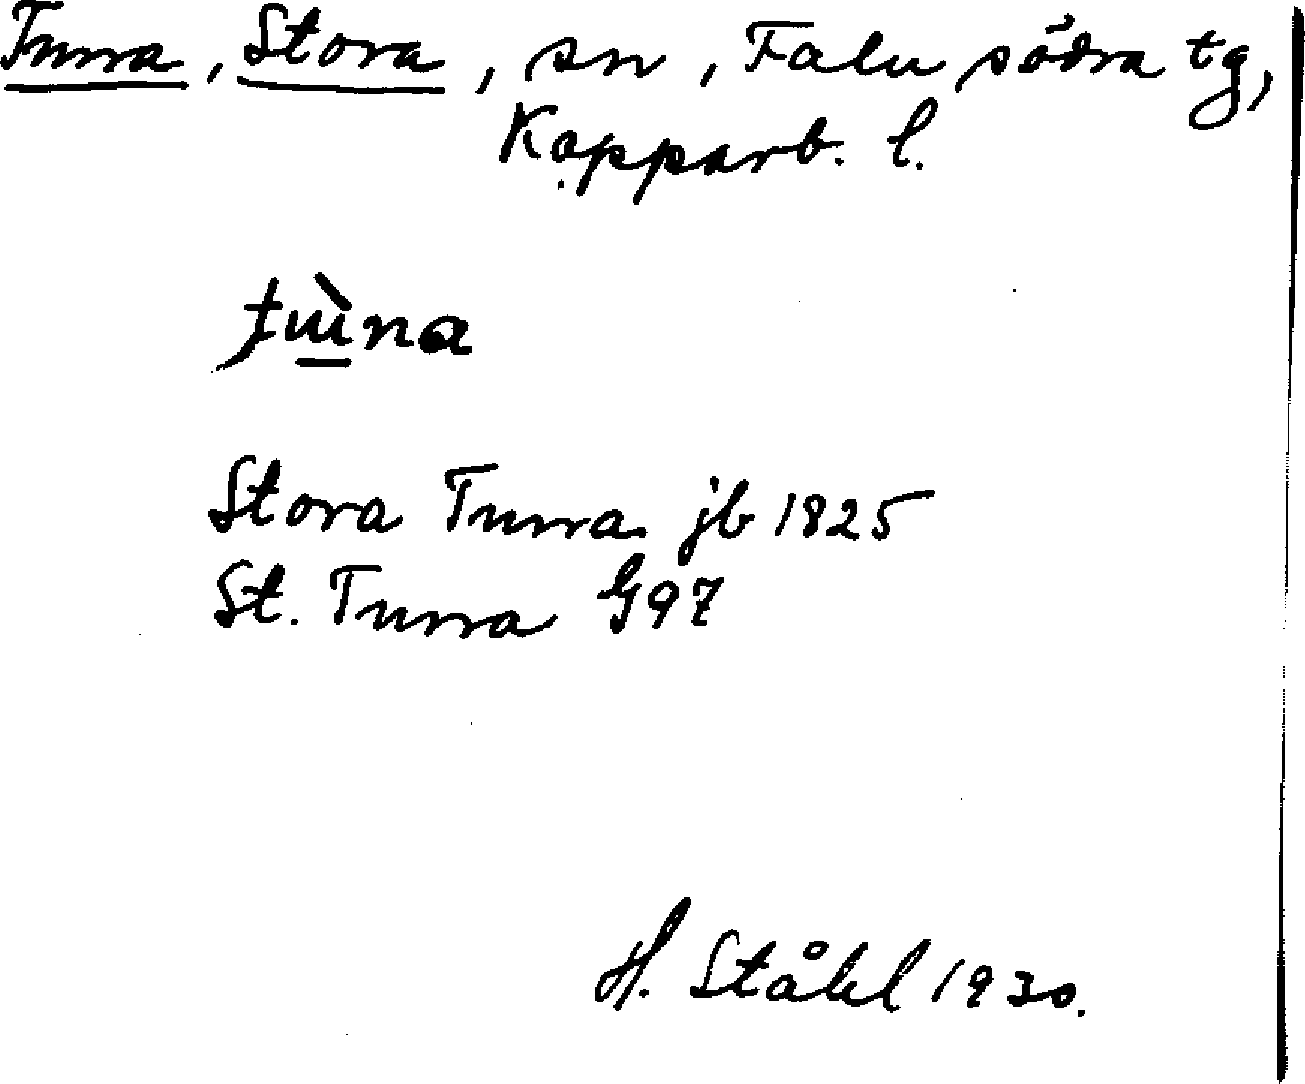 Tuna, Stora, sn, Falu södra tg,
Kopparb. l.
tɯ̀na
Stora Tuna jb 1825
St. Tuna G97
H. Ståhl 1930.